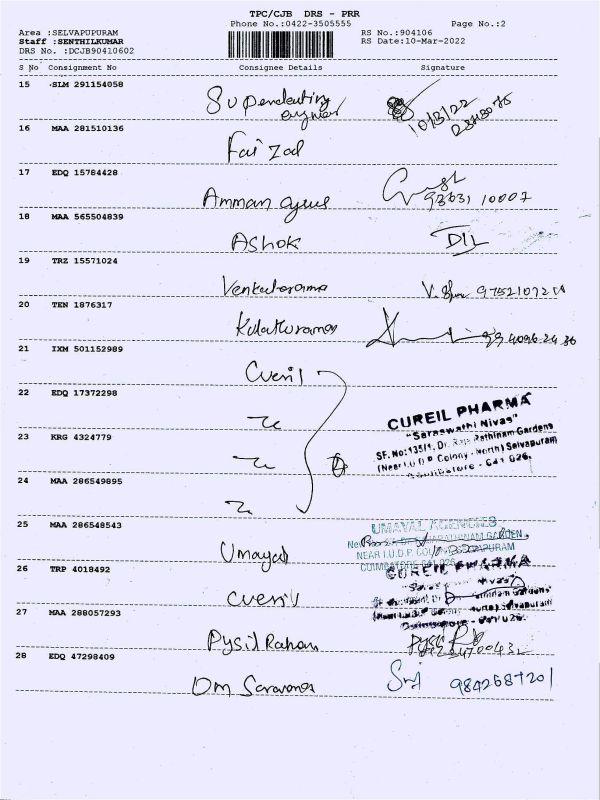 TPC/CJB DRS - PRR
Phone No.:0422-3505555 Page No.:2
Area :SELVAPUPURAM RS No.:904106
Staff :SENTHILKUMAR RS Date:10-Mar-2022
DRS No. :DCJB90410602
S No Consignment No Consignee Details Signature
15 SLM 291154058 Superdenting engineer 10/3/22
16 MAA 281510136 Faizal
17 EDQ 15784428 Amman 93631 10007
18 MAA 565504839 Ashok
19 TRZ 15571024 Venkatarama
20 TEN 1876317
21 IXM 501152989 Cureil
22 EDQ 17372298
CUREIL PHARMA
"Saraswathi Nivas"
23 KRG 4324779
SF.No:135/1, Dr. Raja Rathinam Gardens
(Near I.U.D.P. Colony - North) Selvapuram
Coimbatore - 641 026.
24 MAA 286549895
25 MAA 286548543 Umayal
UMAYAL AGENCIES
NEAR I.U.D.P. COLONY SELVAPURAM
COIMBATORE 641 026
26 TRP 4018492 Cureil
CUREIL PHARMA
27 MAA 288057293
28 EDQ 47298409 Om Saravana 9842687201